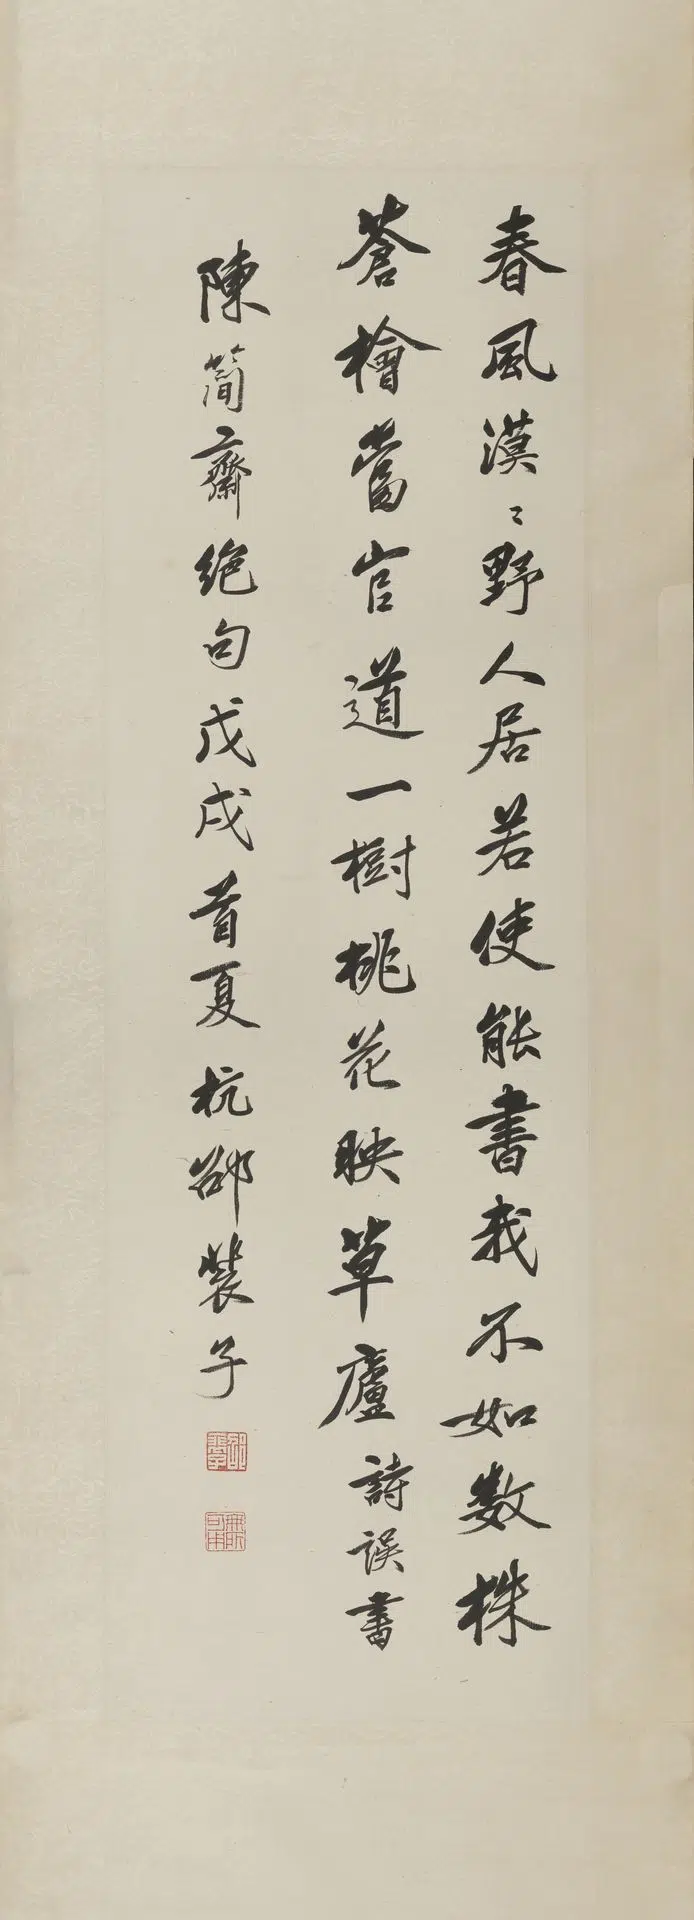 春風漠〻野人居若使能書我不如数株
蒼檜當官道一樹桃花映草廬詩誤書
陳簡齋絕句戊戌首夏杭邵裴子